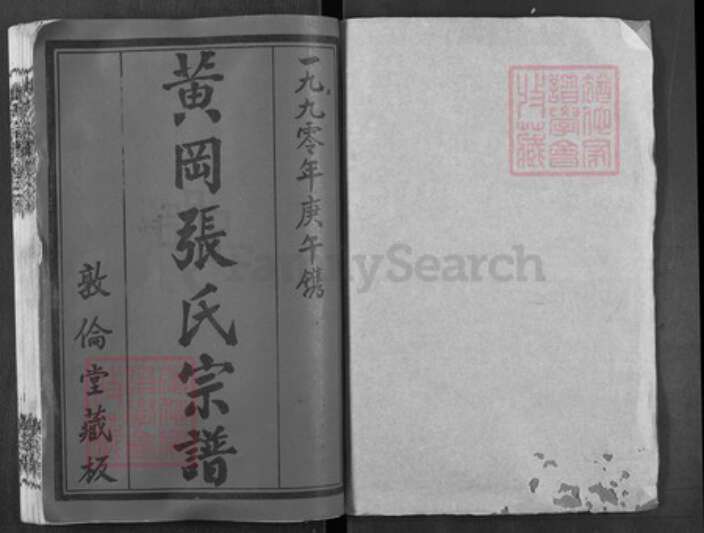 一九九零年庚午鐫
黃岡張氏宗譜
敦倫堂藏板
FamilySearch